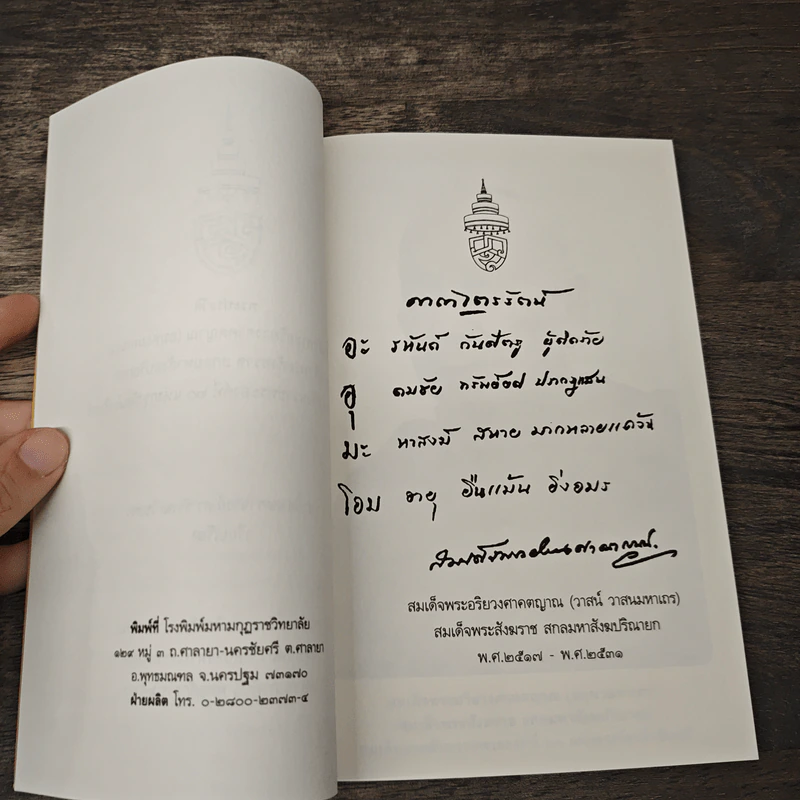 พิมพ์ที่ โรงพิมพ์มหามกุฏราชวิทยาลัย
๑๒๙ หมู่ ๓ ถ.ศาลายา-นครชัยศรี ต.ศาลายา
อ.พุทธมณฑล จ.นครปฐม ๗๓๑๗๐
ฝ่ายผลิต โทร. ๐-๒๘๐๐-๒๓๗๓-๔
คาถาไตรรัตน์
อะ รหันต์ กันศัตรู ผู้คิดภัย
อุ ดมชัย ทรัพย์ยศ ปรากฏแสน
มะ หาสงฆ์ สหาย มากหลายแดน
โอม อายุ ยืนแม้น อิ่งอมร
สมเด็จพระอริยวงศาคตญาณ (วาสน์ วาสนมหาเถร)
สมเด็จพระสังฆราช สกลมหาสังฆปริณายก
พ.ศ.๒๕๑๗ - พ.ศ.๒๕๓๑